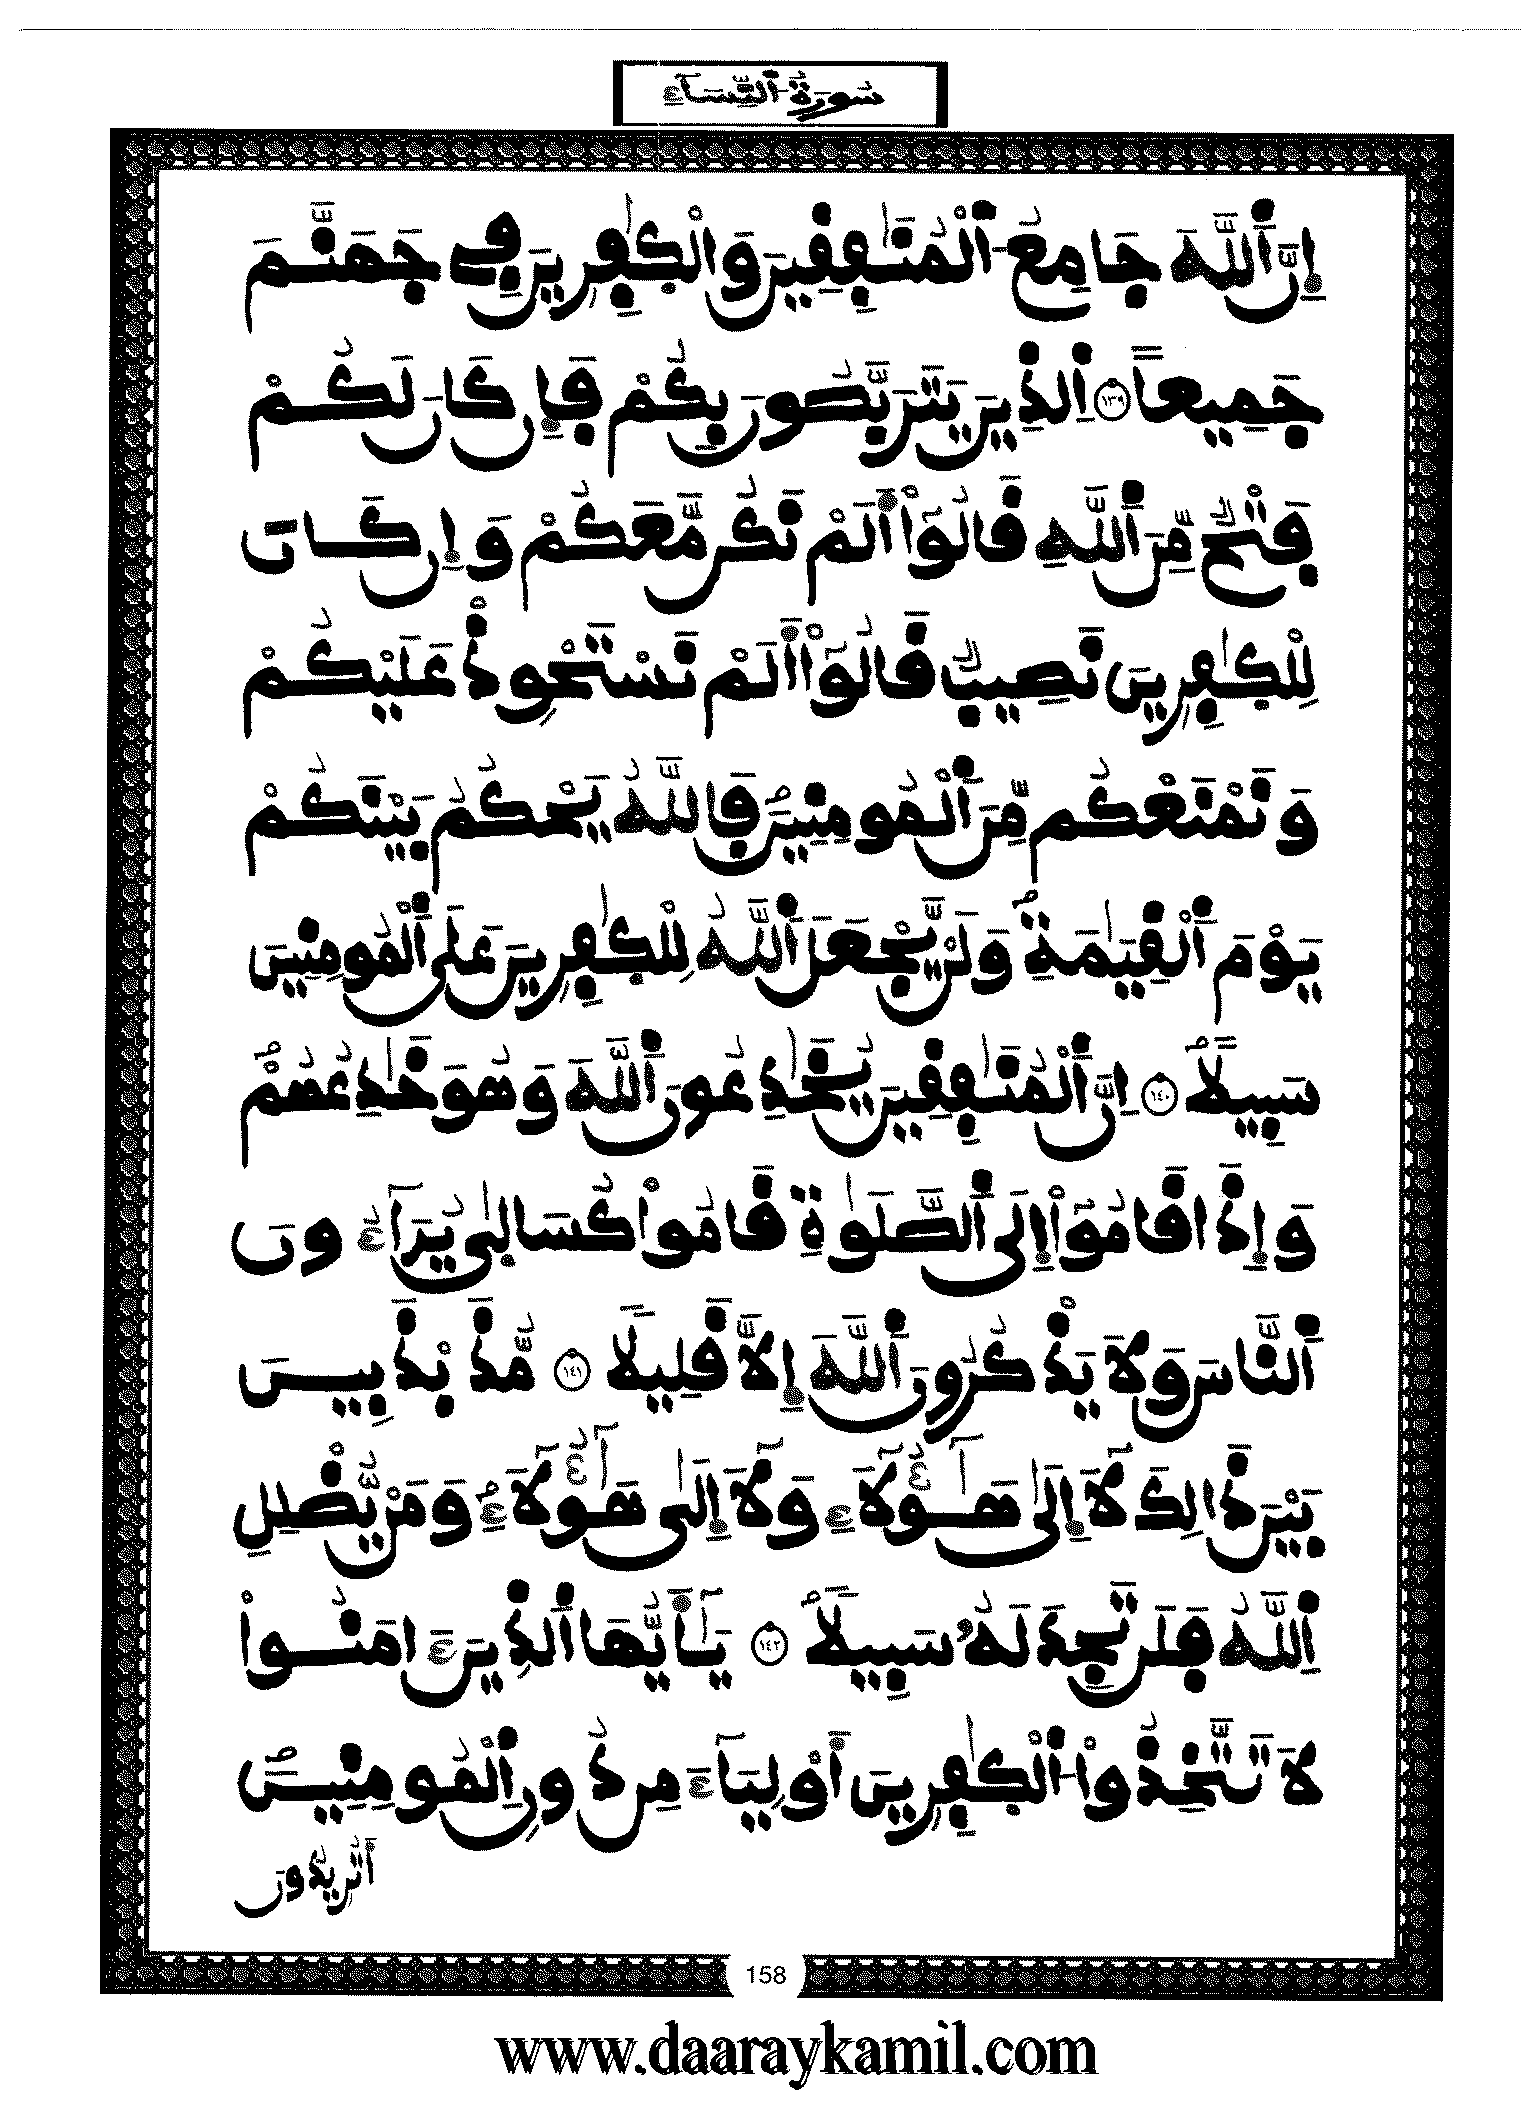 سُورَةُ اَ۬لنِّسَآءِ
إِنَّ اَ۬للَّهَ جَامِعُ اُ۬لْمُنَٰفِقِينَ وَالْكٰ۪فِرِينَ فِے جَهَنَّمَ
جَمِيعاً ١٣٩ اِ۬لذِينَ يَتَرَبَّصُونَ بِكُمْ فَإِن كَانَ لَكُمْ
فَتْحٞ مِّنَ اَ۬للَّهِ قَالُوٓاْ أَلَمْ نَكُن مَّعَكُمْ وَإِن كَانَ
لِلْكٰ۪فِرِينَ نَصِيبٞ قَالُوٓاْ أَلَمْ نَسْتَحْوِذْ عَلَيْكُمْ
وَنَمْنَعْكُم مِّنَ اَ۬لْمُومِنِينَۖ فَاللَّهُ يَحْكُمُ بَيْنَكُمْ
يَوْمَ اَ۬لْقِيَٰمَةِۖ وَلَنْ يَّجْعَلَ اَ۬للَّهُ لِلْكٰ۪فِرِينَ عَلَى اَ۬لْمُومِنِينَ
سَبِيلاًۖ ١٤٠ اِنَّ اَ۬لْمُنَٰفِقِينَ يُخَٰدِعُونَ اَ۬للَّهَ وَهُوَ خَٰدِعُهُمْۖ
وَإِذَا قَامُوٓاْ إِلَى اَ۬لصَّلَوٰةِ قَامُواْ كُسَالَىٰ يُرَآءُونَ
اَ۬لنَّاسَ وَلَا يَذْكُرُونَ اَ۬للَّهَ إِلَّا قَلِيلاً ١٤١ مُّذَبْذَبِينَ
بَيْنَ ذَالِكَ لَآ إِلَىٰ هَٰٓؤُلَآءِ وَلَآ إِلَىٰ هَٰٓؤُلَآءِۖ وَمَنْ يُّضْلِلِ
اِ۬للَّهُ فَلَن تَجِدَ لَهُۥ سَبِيلاًۖ ١٤٢ يَٰٓأَيُّهَا اَ۬لذِينَ ءَامَنُواْ
لَا تَتَّخِذُواْ اُ۬لْكٰ۪فِرِينَ أَوْلِيَآءَ مِن دُونِ اِ۬لْمُومِنِينَۖ
أَتُرِيدُونَ
158
www.daaraykamil.com